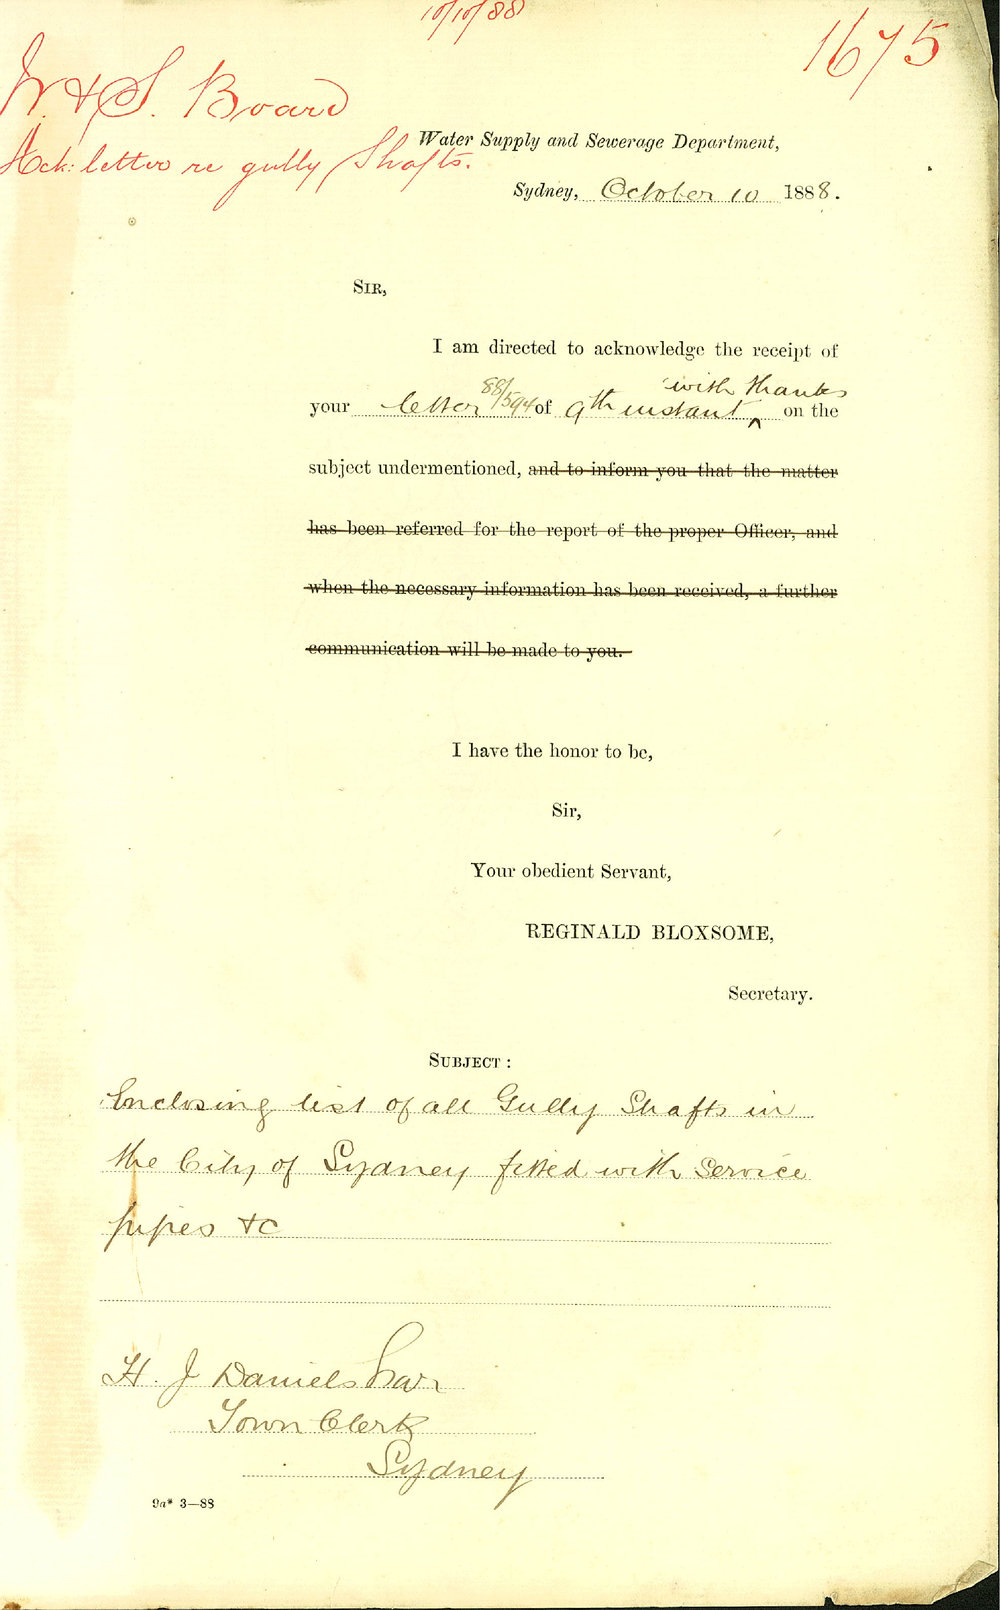 10/10/88
1675
W. & S. Board
Ack: letter re gully Shafts.
Water Supply and Sewerage Department,
Sydney, October 10 1888.
SIR,
I am directed to acknowledge the receipt of
with thanks
your letter 88/594 of 9th instant ^ on the
subject undermentioned, and to inform you that the matter
has been referred for the report of the proper Officer, and
when the necessary information has been received, a further
communication will be made to you.
I have the honor to be,
Sir,
Your obedient Servant,
REGINALD BLOXSOME,
Secretary.
SUBJECT :
Enclosing list of all Gully Shafts in
the City of Sydney fitted with Service
pipes &c
H. J Daniels
Town Clerk
Sydney
9a* 3—88